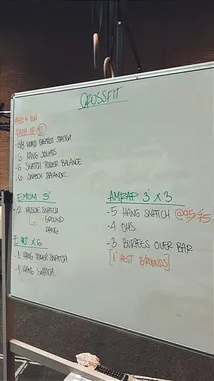 CROSSFIT
6 HANG SQUATS
6 SNATCH POWER BALANCE
6 SNATCH BALANCE
EMOM 5'
2 MUSCLE SNATCH
GROUND
HANG
X 6
1 HANG POWER SNATCH
1 HANG SNATCH
AMRAP 3' X 3
-5 HANG SNATCH @95/75
-4 OHS
-3 BURPEES OVER BAR
[1' REST B/ROUNDS]